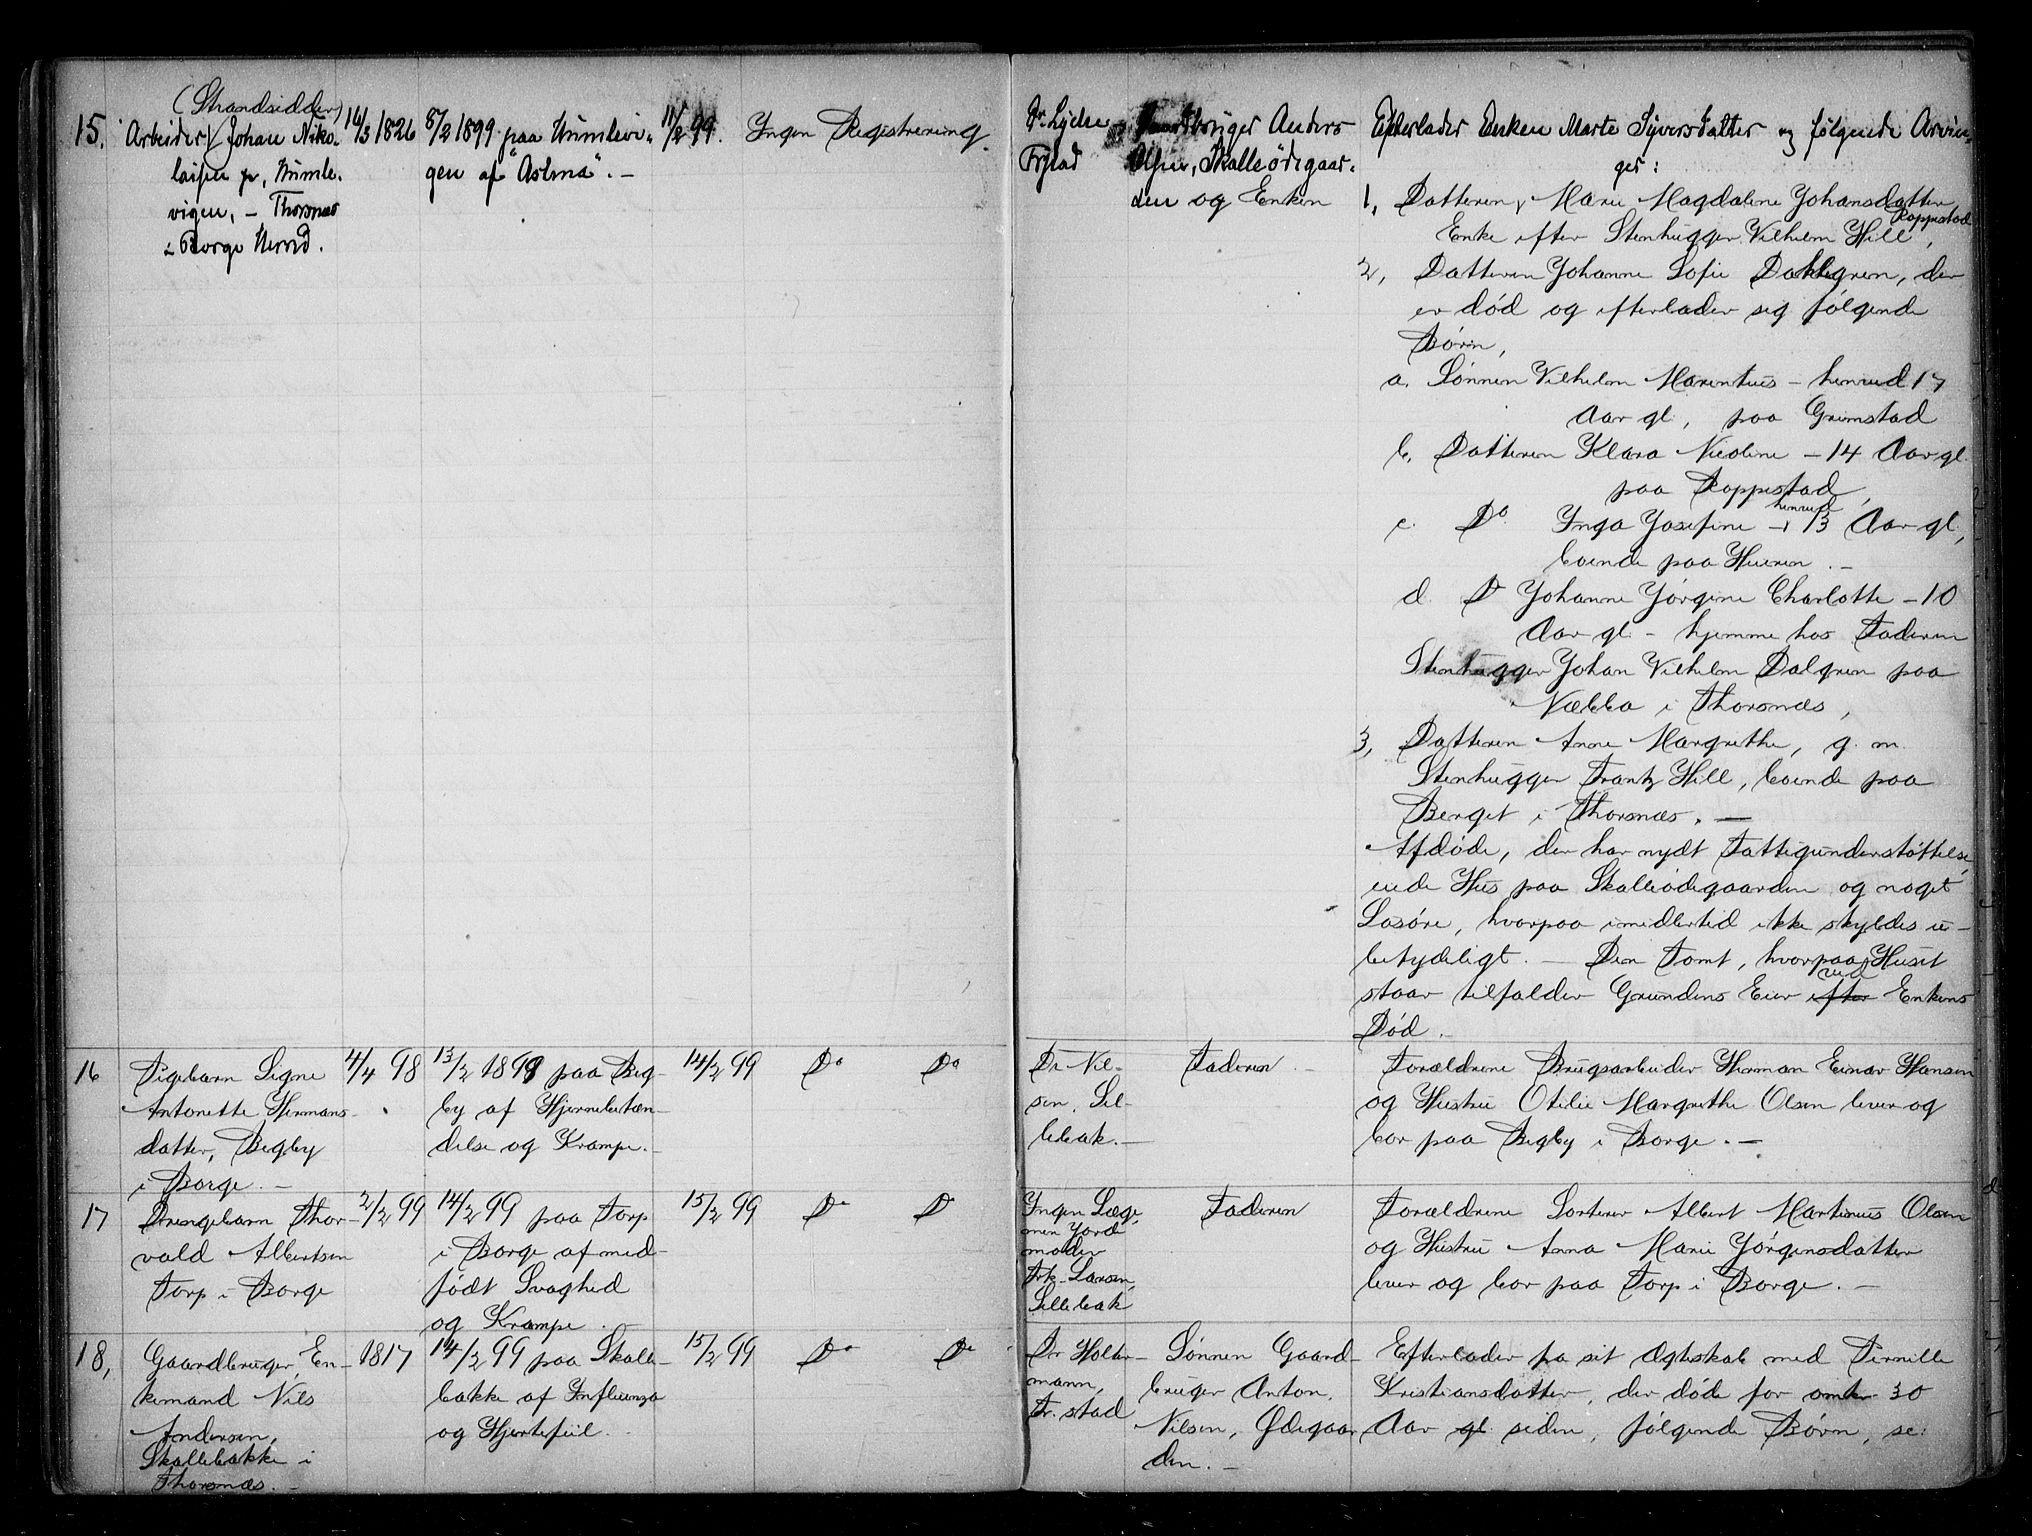 15. Arbeider (Strandsidder) Johan Niko-
laisen fr. Humle-
vigen, – Thorsnæs
i Borge Herred.
16/3 1826
8/2 1899 paa Humlevi-
gen af "Astma". –
11/2 99.
Ingen Registrering.
Dr. Lyche
Frstad
Gaardbruger Anders
Olsen, Skalleødegaar-
den og Enken
Efterlader Enken Marte Syversdatter og følgende Arvin-
ger:
1, Datteren, Marie Magdalene Johansdatter,
Enke efter Stenhugger Vilhelm Hill, Roppestad
2, Datteren Johanne Sofie Dahlgren, der
er død og efterlader sig følgende
Børn,
a. Sønnen Vilhelm Marentius – henved 17
Aar gl, paa Grimstad
b. Datteren Klara Nicoline – 14 Aar gl.
paa Roppestad,
c. Do Inga Josefine – henved 13 Aar gl,
boende paa Hueren. –
d. Do Johanne Jørgine Charlotte – 10
Aar gl – hjemme hos Faderen
Stenhugger Johan Vilhelm Dalgren paa
Næbba i Thorsnæs,
3, Datteren Anne Margrethe, g. m.
Stenhugger Frantz Hill, boende paa
Berget i Thorsnæs. –
Afdøde, der har nydt Fattigunderstøttelse,
eiede Hus paa Skalleødegaarden og noget
Løsøre, hvorpaa imidlertid ikke skyldes u-
betydeligt. – Den Tomt, hvorpaa Huset
staar tilfalder Grundens Eier efter ved Enkens
Død. –
16 Pigebarn Signe
Antonette Hermans-
datter, Begby
i Borge. –
4/4 98
13/2 1899 paa Beg-
by af Hjernebetæn-
delse og Krampe. –
14/2 99
Do Do
Dr Nil-
sen, Sel-
lebak. –
Faderen
Forældrene Brugsarbeider Herman Einar Hansen
og Hustru Otilie Margrethe Olsen lever og
bor paa Begby i Borge. –
17 Drengebarn Thor-
vald Albertsen
Torp i Borge
2/2 99
14/2 99 paa Torp
i Borge af med-
født Svaghed
og Krampe.
15/2 99
Do Do
Ingen Læge,
men Jord
moder
Frk. Larsen,
Sellebak
Faderen
Forældrene Sorterer Albert Martinius Olsen
og Hustru Anna Marie Jørgensdatter
lever og bor paa Torp i Borge. –
18, Gaardbruger, En-
kemand Nils
Andersen,
Skallebakke i
Thorsnæs. –
1817
14/2 99 paa Skalle-
bakke af Influenza
og Hjertefeil.
15/2 99
Do Do
Dr Holter-
mann,
Fr.stad
Sønnen Gaard-
bruger Anton
Nilsen, Ødegaar-
den. –
Efterlader fra sit Ægteskab med Pernille
Kristiansdatter, der døde for omtr 30
Aar gl siden, følgende Børn, se: